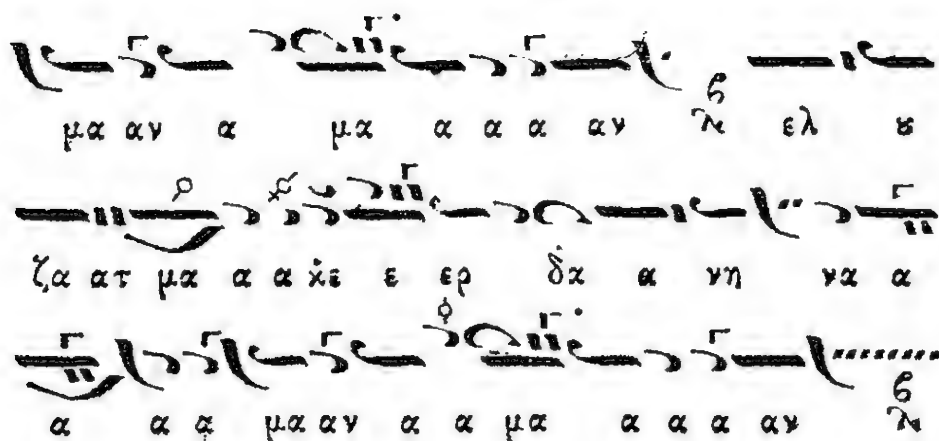 μα αν α μα α α α αν ελ ȣ
ζα ατ μα α α κε ε ερ δα α νη να α
α α α μα αν α α μα α α α αν